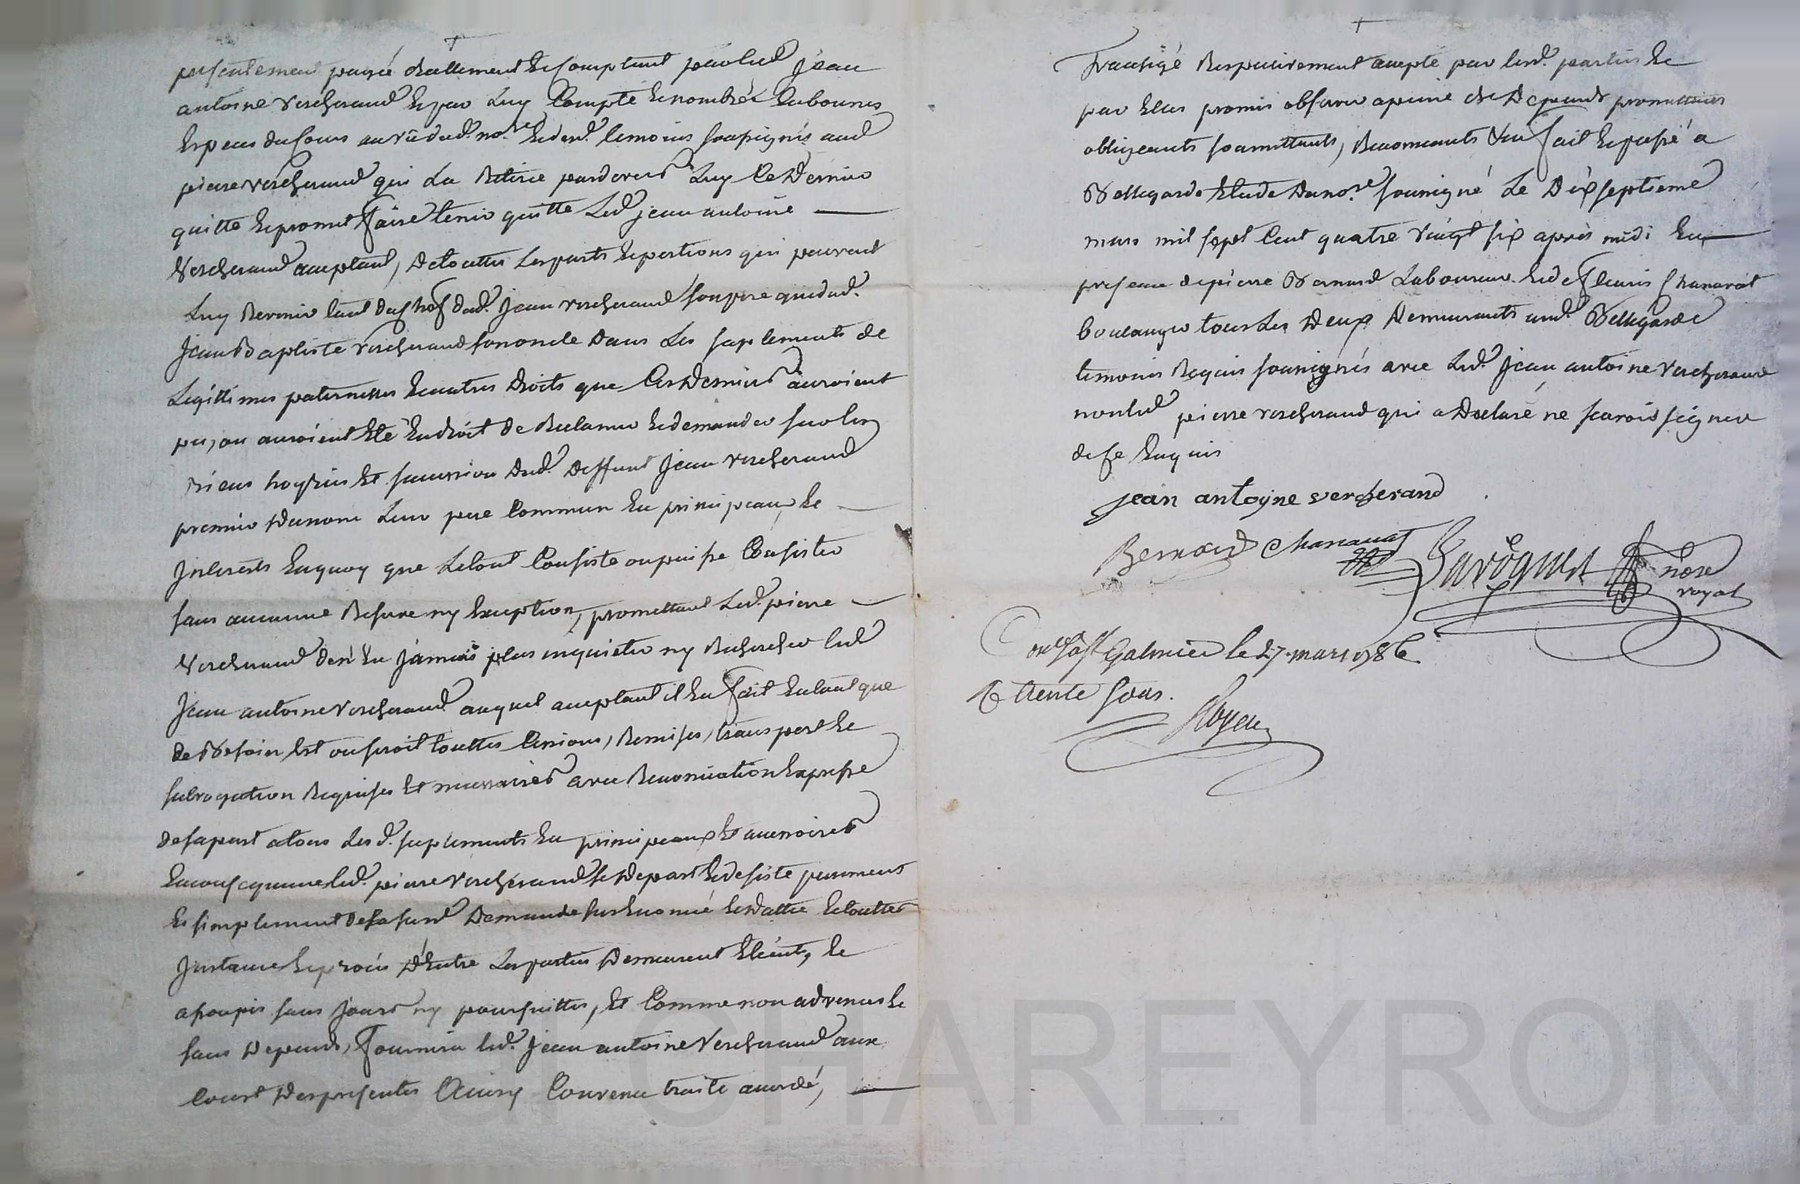 presentement payé reellement et comptant par led jean
antoine vercherand et par luy compté et nombré en bonnes
especes du cours au vû dud. no.re et des d. temoins soussignés aud
pierre vercherand qui la retirée pardevers luy ce dernier
quitte et promet faire tenir quitte led. jean antoine
vercherand acceptant, de touttes les parts et portions qui peuvent
luy revenir tant du chef dud. jean vercherand son pere que dud.
jean baptiste vercherand son oncle dans les suplements de
legittimes paternelles et autres droits que ces derniers auroient
pu, ou auroient été en droit de reclamer et demander sur les
biens hoyries et succession dud. deffunt jean vercherand
premier du nom leur pere commun en principeaux et
interests en quoy que le tout consiste ou puisse consister
sans aucune reserve ny exception, promettant led. pierre
vercherand de n'en jamais plus inquieter ny rechercher led
jean antoine vercherand auquel acceptant il en fait en tant que
de besoin est ou seroit touttes cessions, remises, transport et
subrogation requises et necessaires avec renonciation expresse
de sa part a tous les d. suplements en principeaux et accessoires
en consequence led. pierre vercherand se depart et desiste purement
et simplement de sa susd demande sus enoncé et dattée et touttes
instance et procès d'entre les parties demeurent éteints, et
assoupis sans jours ny poursuittes, et comme non advenus et
sans depends, fournira led. jean antoine vercherand aux
cours des presentes Ainsy convenu traité accordé,
transigé respectivement accepté par lesd. parties et
par elles promis observer a peine de depends promettants
obligeants soumettants, renonceants &a fait et passé a
Bellegarde etude du no.re soussigné le dix septieme
mars mil sept cent quatre vingt six après midi en
presence de pierre Bernard laboureur et de fleuris chanavat
boulanger tous les deux demeurants aud. Bellegarde
temoins requis soussignés avec led. jean antoine vercherand
non led pierre vercherand qui a declaré ne scavoir signer
de ce enquis
jean antoyne vercherand
Bernard chanavat
nore
royal
Con.lé a st Galmier le 27 mars 1786
R trente sous.
CHAREYRON